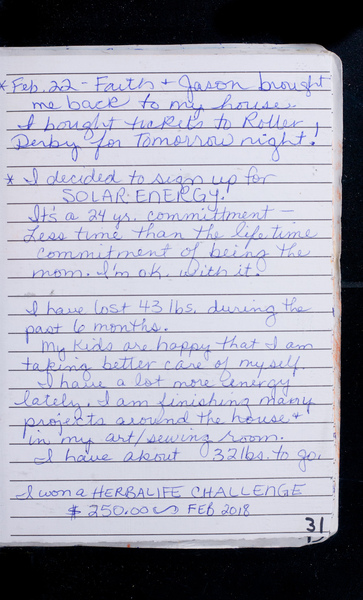 * Feb. 22 - Faith + Jason brought
me back to my house.
I bought tickets to Roller
Derby for Tomorrow night!
* I decided to sign up for
SOLAR ENERGY.
It's a 24 yr. committment -
Less time than the lifetime
commitment of being the
mom. I'm ok with it.
I have lost 43 lbs. during the
past 6 months.
My kids are happy that I am
taking better care of myself.
I have a lot more energy
lately. I am finishing many
projects around the house +
in my art/sewing room.
I have about 32 lbs. to go.
I won a HERBALIFE CHALLENGE
$250.00 FEB 2018
31